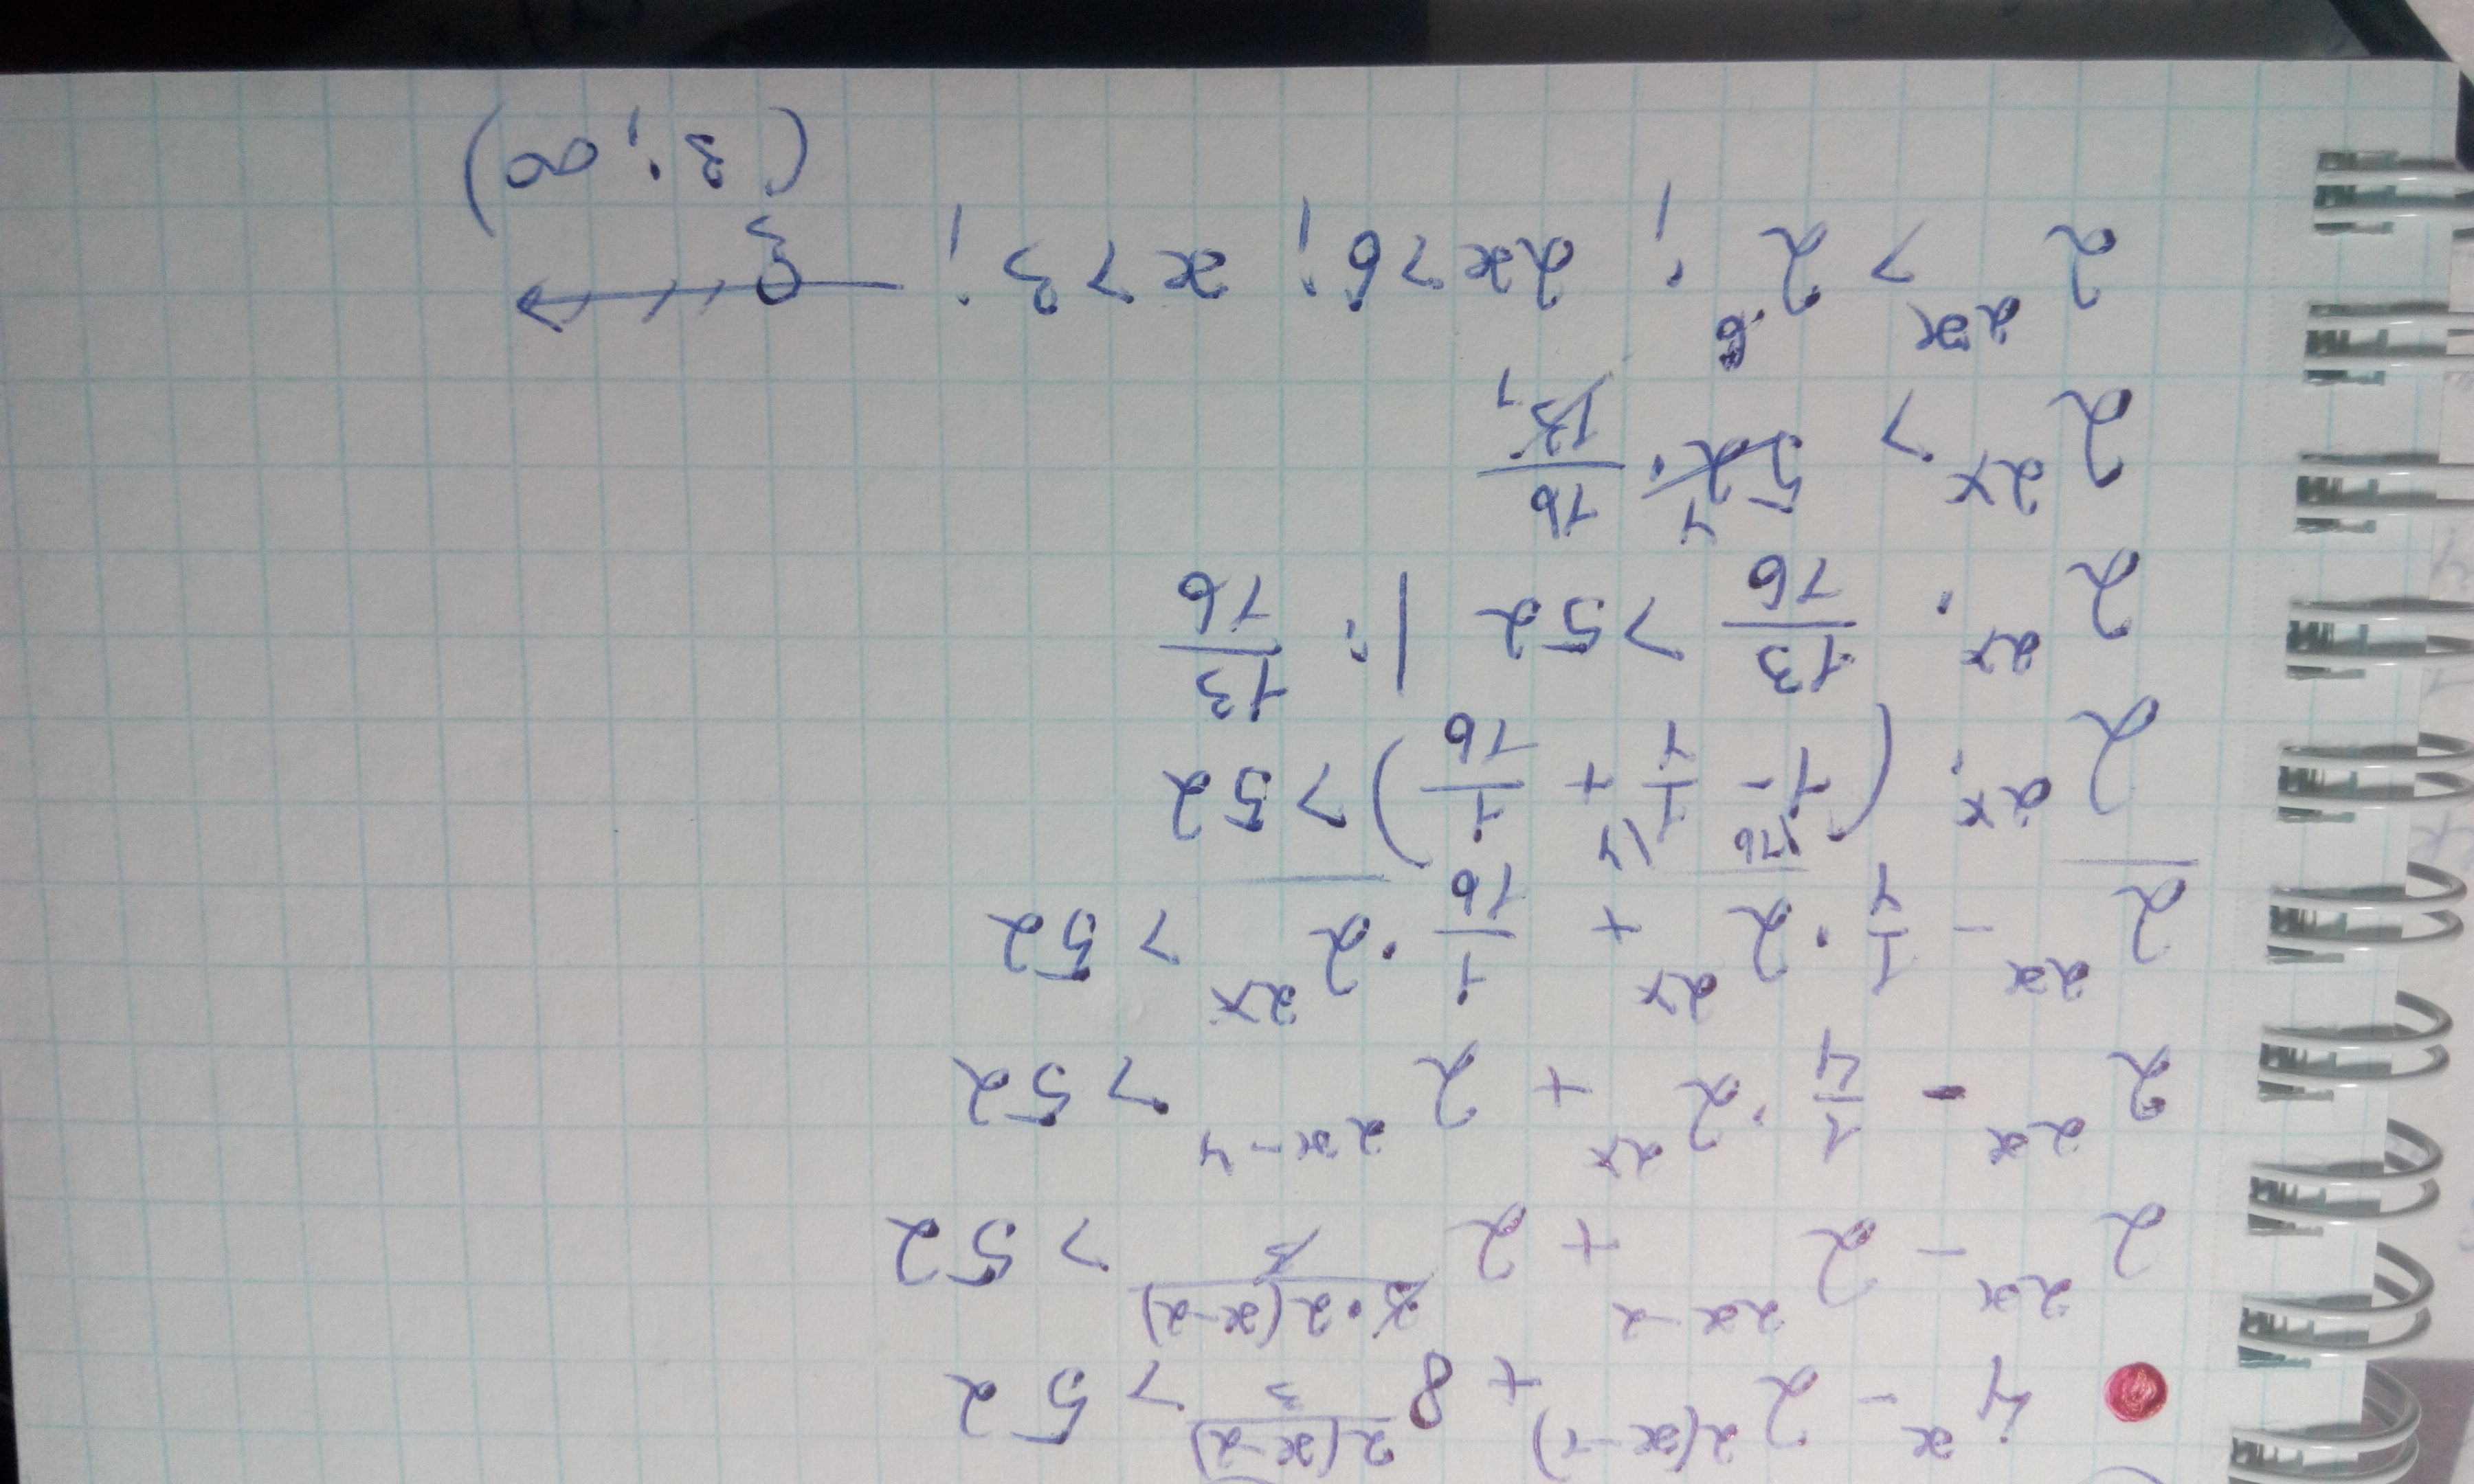 4^x - 2^{2(x-1)} + 8^{\frac{2(x-2)}{3}} > 52
2^{2x} - 2^{2x-2} + 2^{\frac{3·2(x-2)}{3}} > 52
2^{2x} - \frac{1}{4}·2^{2x} + 2^{2x-4} > 52
2^{2x} - \frac{1}{4}·2^{2x} + \frac{1}{16}·2^{2x} > 52
2^{2x}·(1 - \frac{1}{4} + \frac{1}{16}) > 52
2^{2x}·\frac{13}{16} > 52 | : \frac{13}{16}
2^{2x} > 52·\frac{16}{13}
2^{2x} > 2^6; 2x > 6; x > 3; 3
(3; ∞)